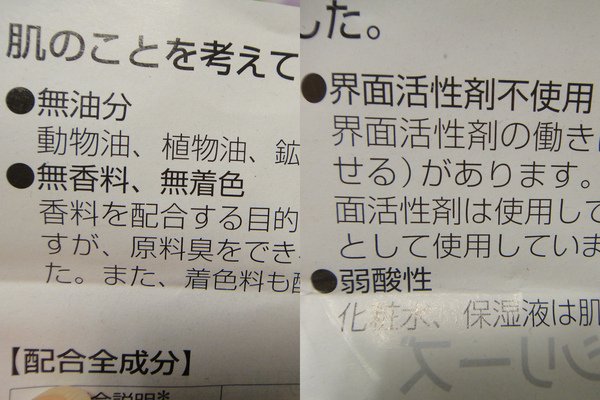 肌のことを考えて
●無油分
動物油、植物油、鉱
●無香料、無着色
香料を配合する目的
すが、原料臭をでき
た。また、着色料も配
【配合全成分】
した。
●界面活性剤不使用
界面活性剤の働き
せる)があります。
面活性剤は使用して
として使用していま
●弱酸性
化粧水、保湿液は肌
シリーズ